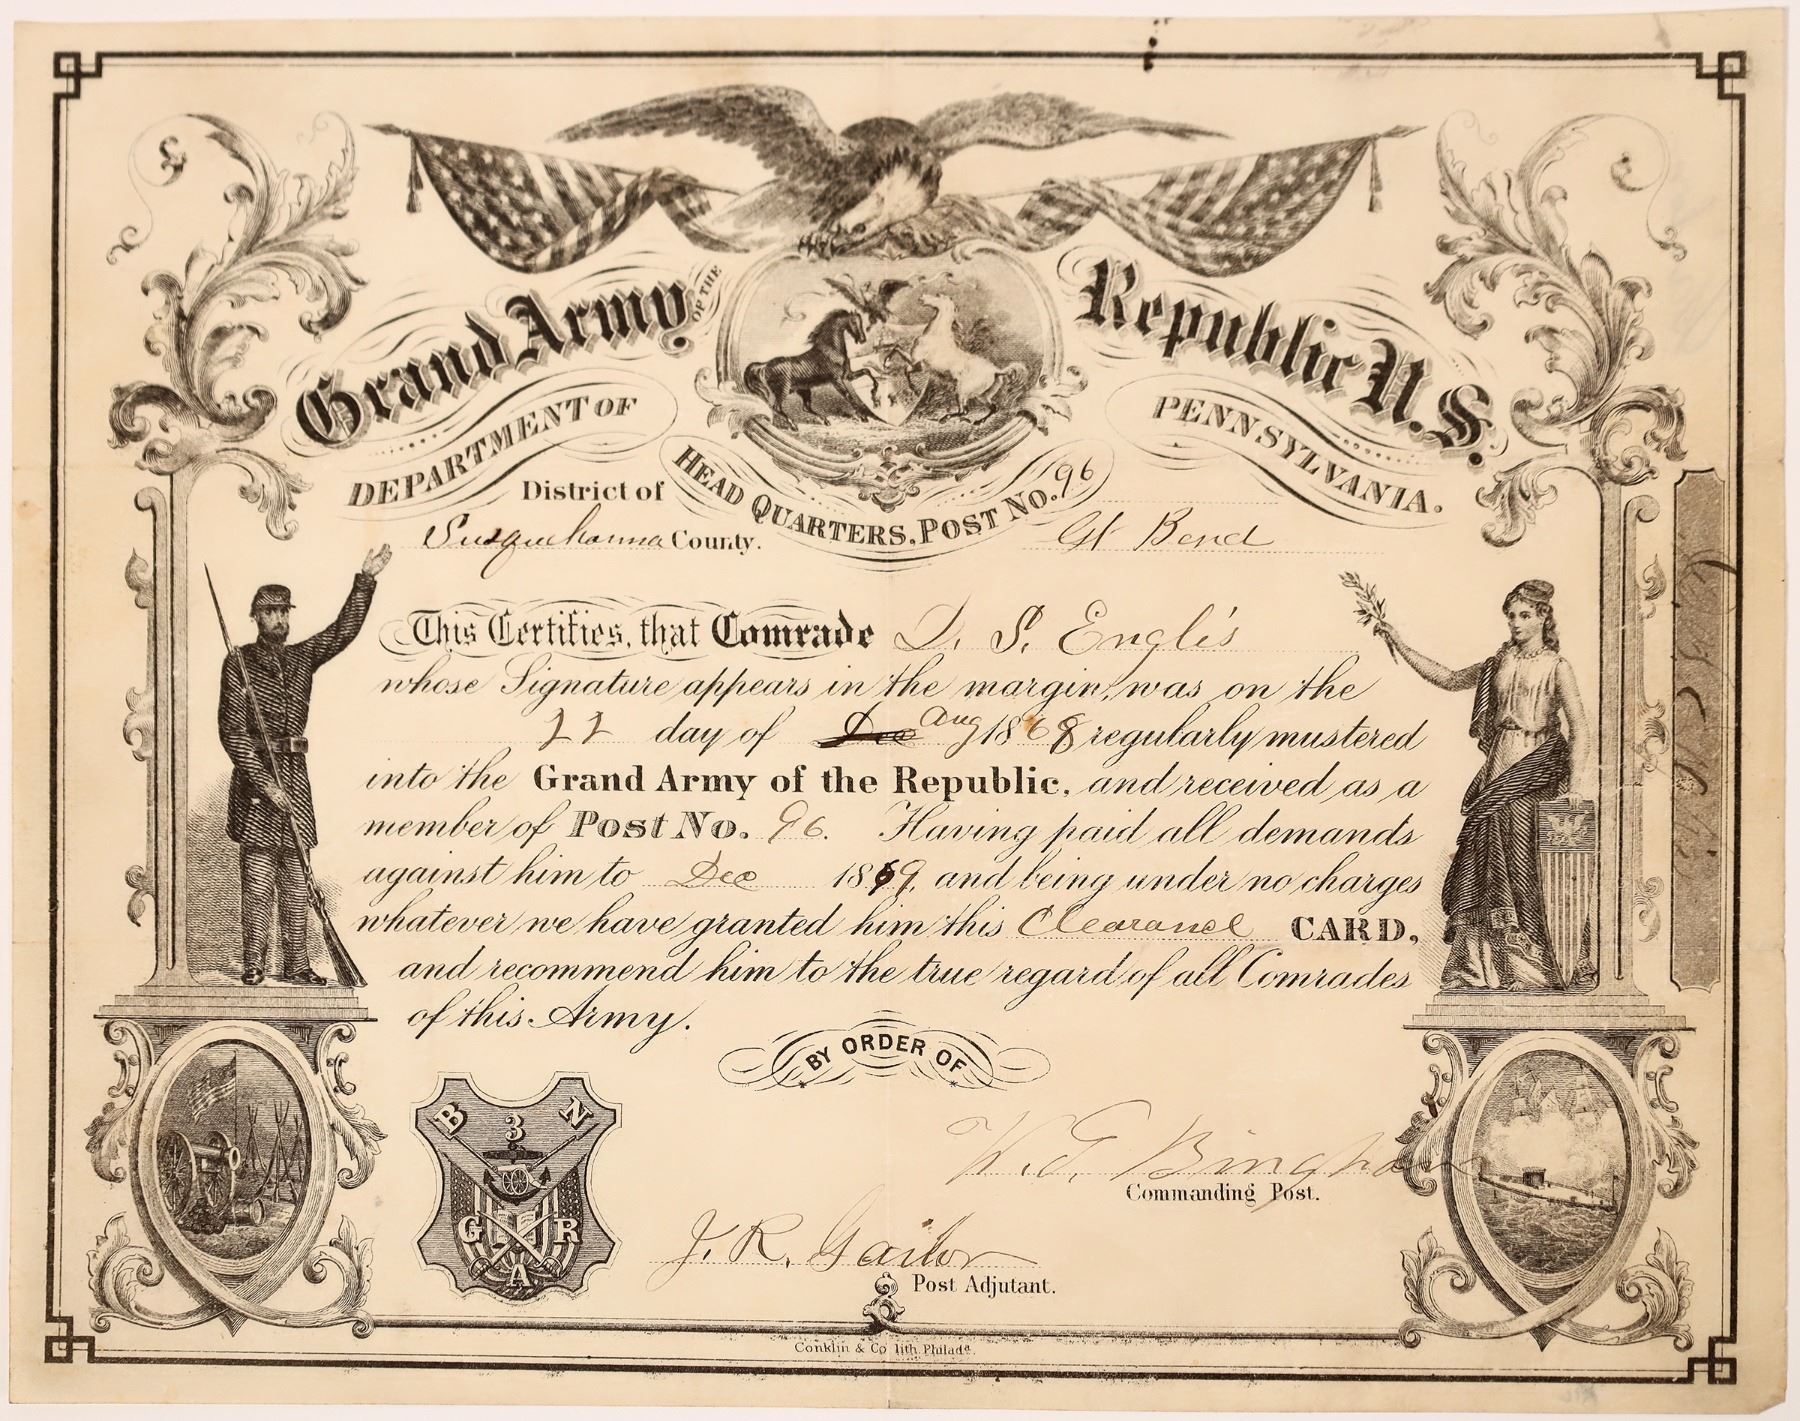 Grand Army OF THE Republic U.S.
DEPARTMENT OF PENNSYLVANIA.
HEAD QUARTERS, POST NO. 96
District of
Susquehanna County. Gt Bend
This Certifies, that Comrade D. S. Englis
whose Signature appears in the margin, was on the
22 day of Dec Aug 1868 regularly mustered
into the Grand Army of the Republic, and received as a
member of Post No. 96. Having paid all demands
against him to Dec 1869, and being under no charges
whatever we have granted him this Clearance CARD,
and recommend him to the true regard of all Comrades
of this Army.
BY ORDER OF
B 3 N
G A R
W. G. Bingham
Commanding Post.
J. R. Gailor
Post Adjutant.
Conklin & Co lith. Philada.